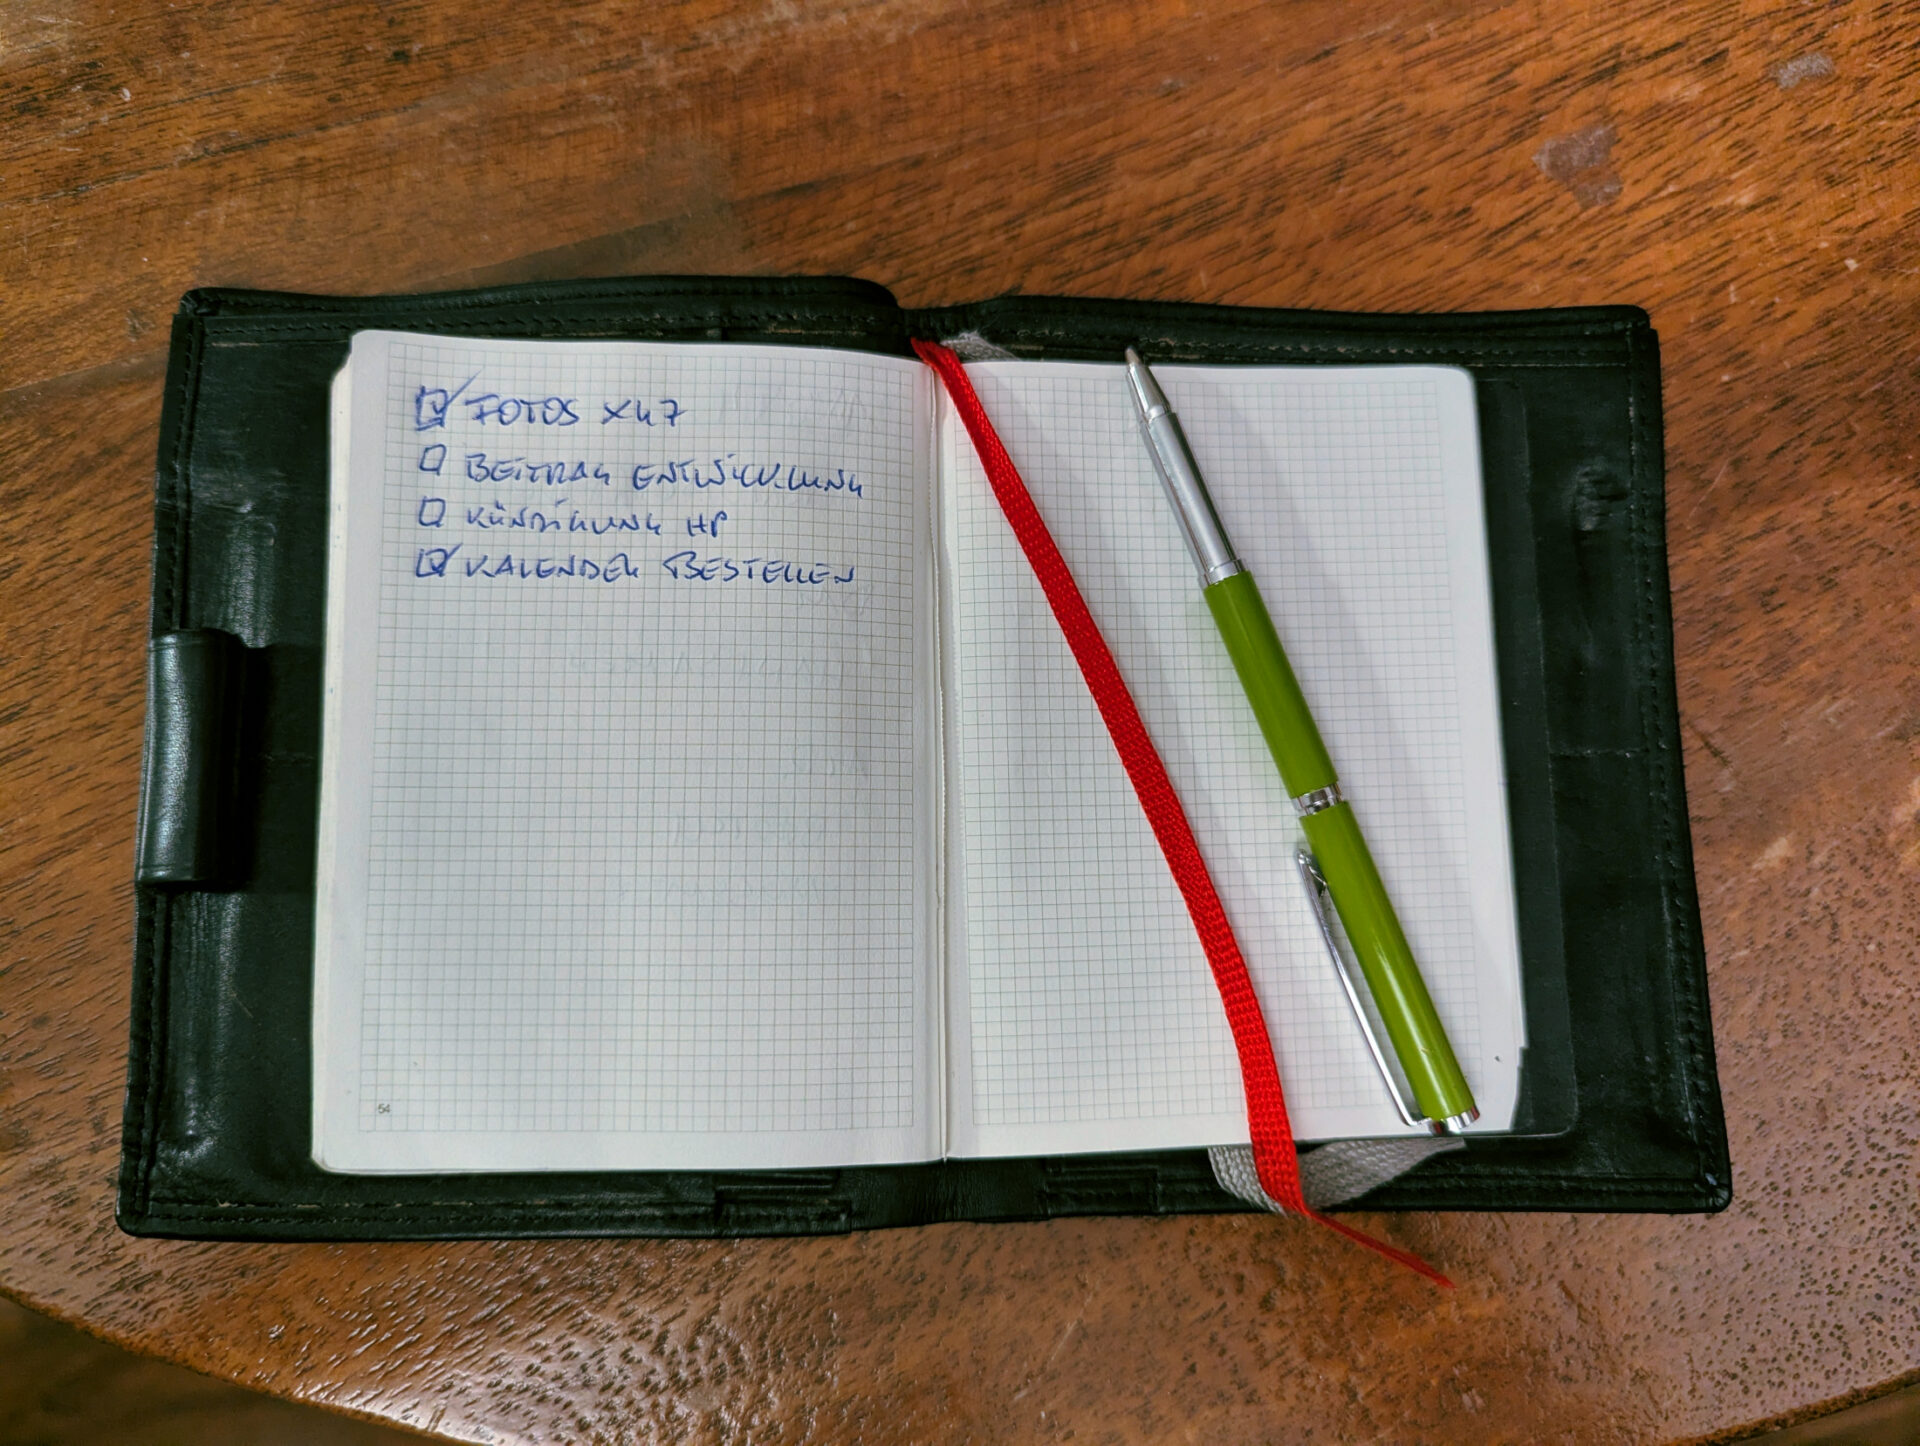 ☑ FOTOS X47
☐ BEITRAG ENTWICKLUNG
☐ KÜNDIGUNG HP
☑ KALENDER BESTELLEN
54